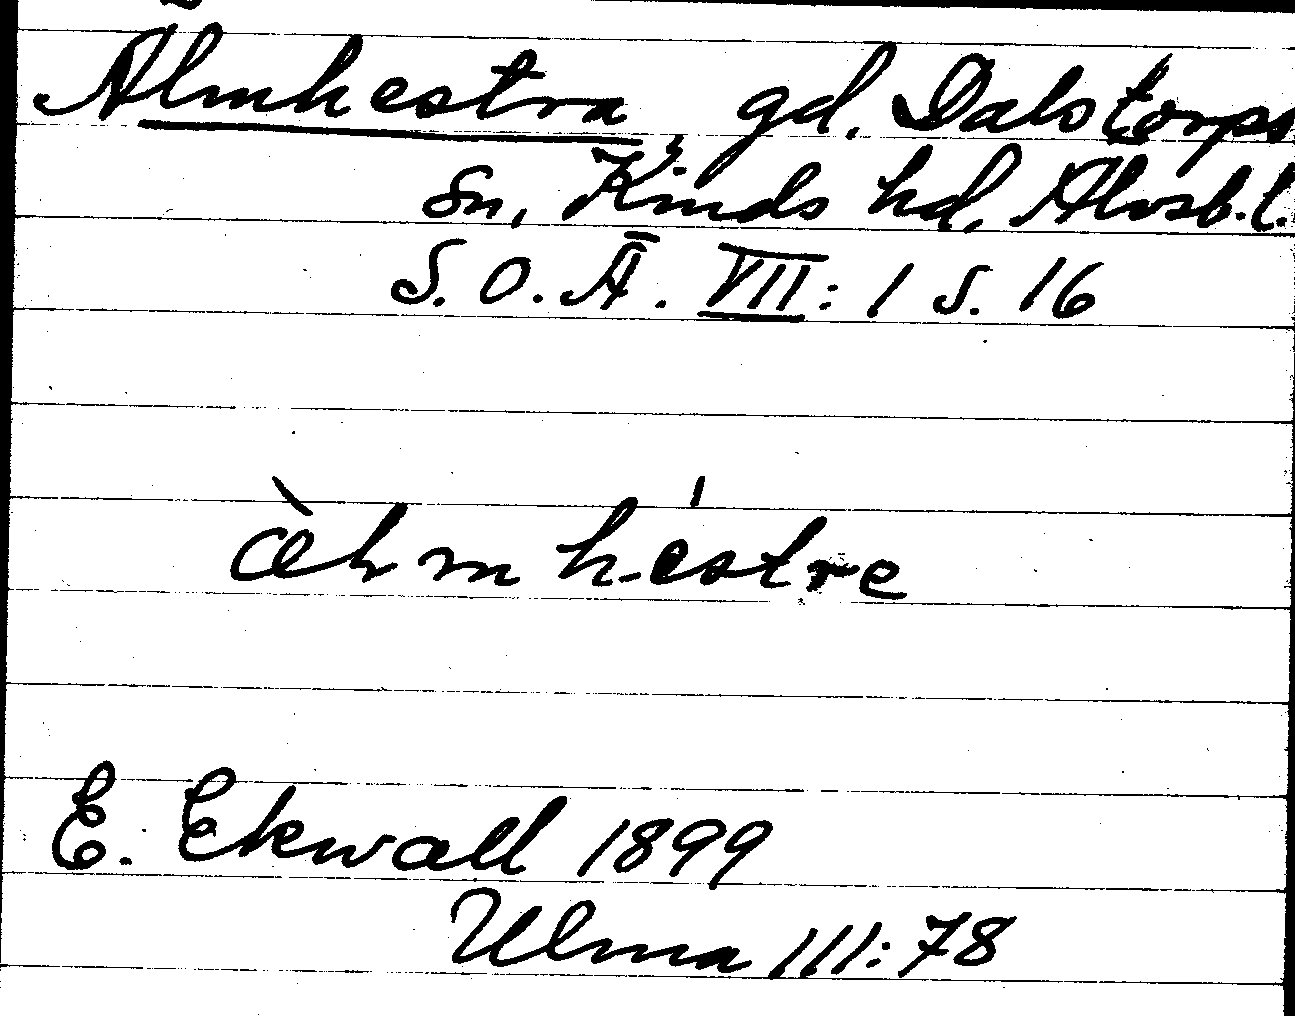 Älmhestra, gd. Dalstorps
sn, Kinds hd. Älvsb. l.
S. O. Ä. VII: 1 s. 16
E. Ekwall 1899
Ulma 111:78